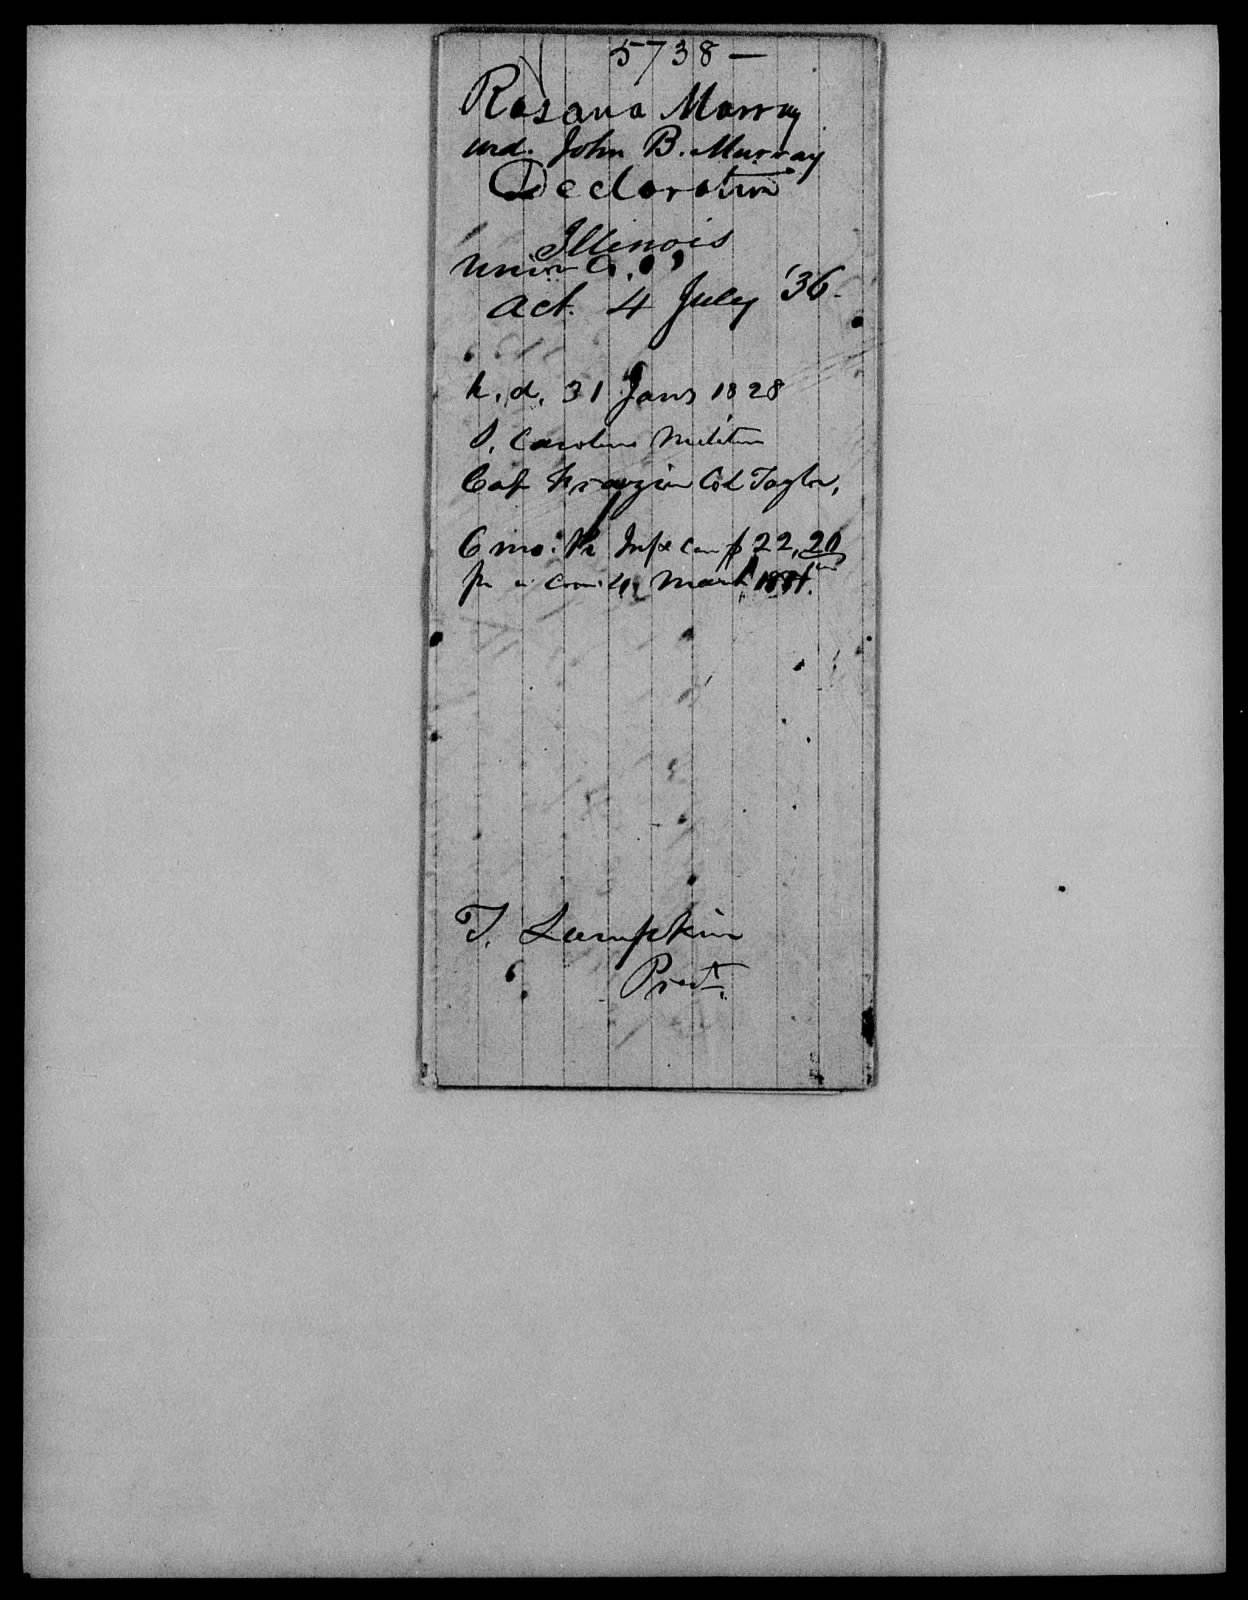 5738 —
Rosana Murray
wid. John B. Murray
Declaration
Illinois
Union Co.
Act. 4 July '36.
h. d. 31 Jany 1828
S. Carolina Militia
Cap Frazier Col Taylor,
6 mo. Pr Inf & Cav $22,20
pr a com 4 March 1831.
T. Lumpkin
Prest.